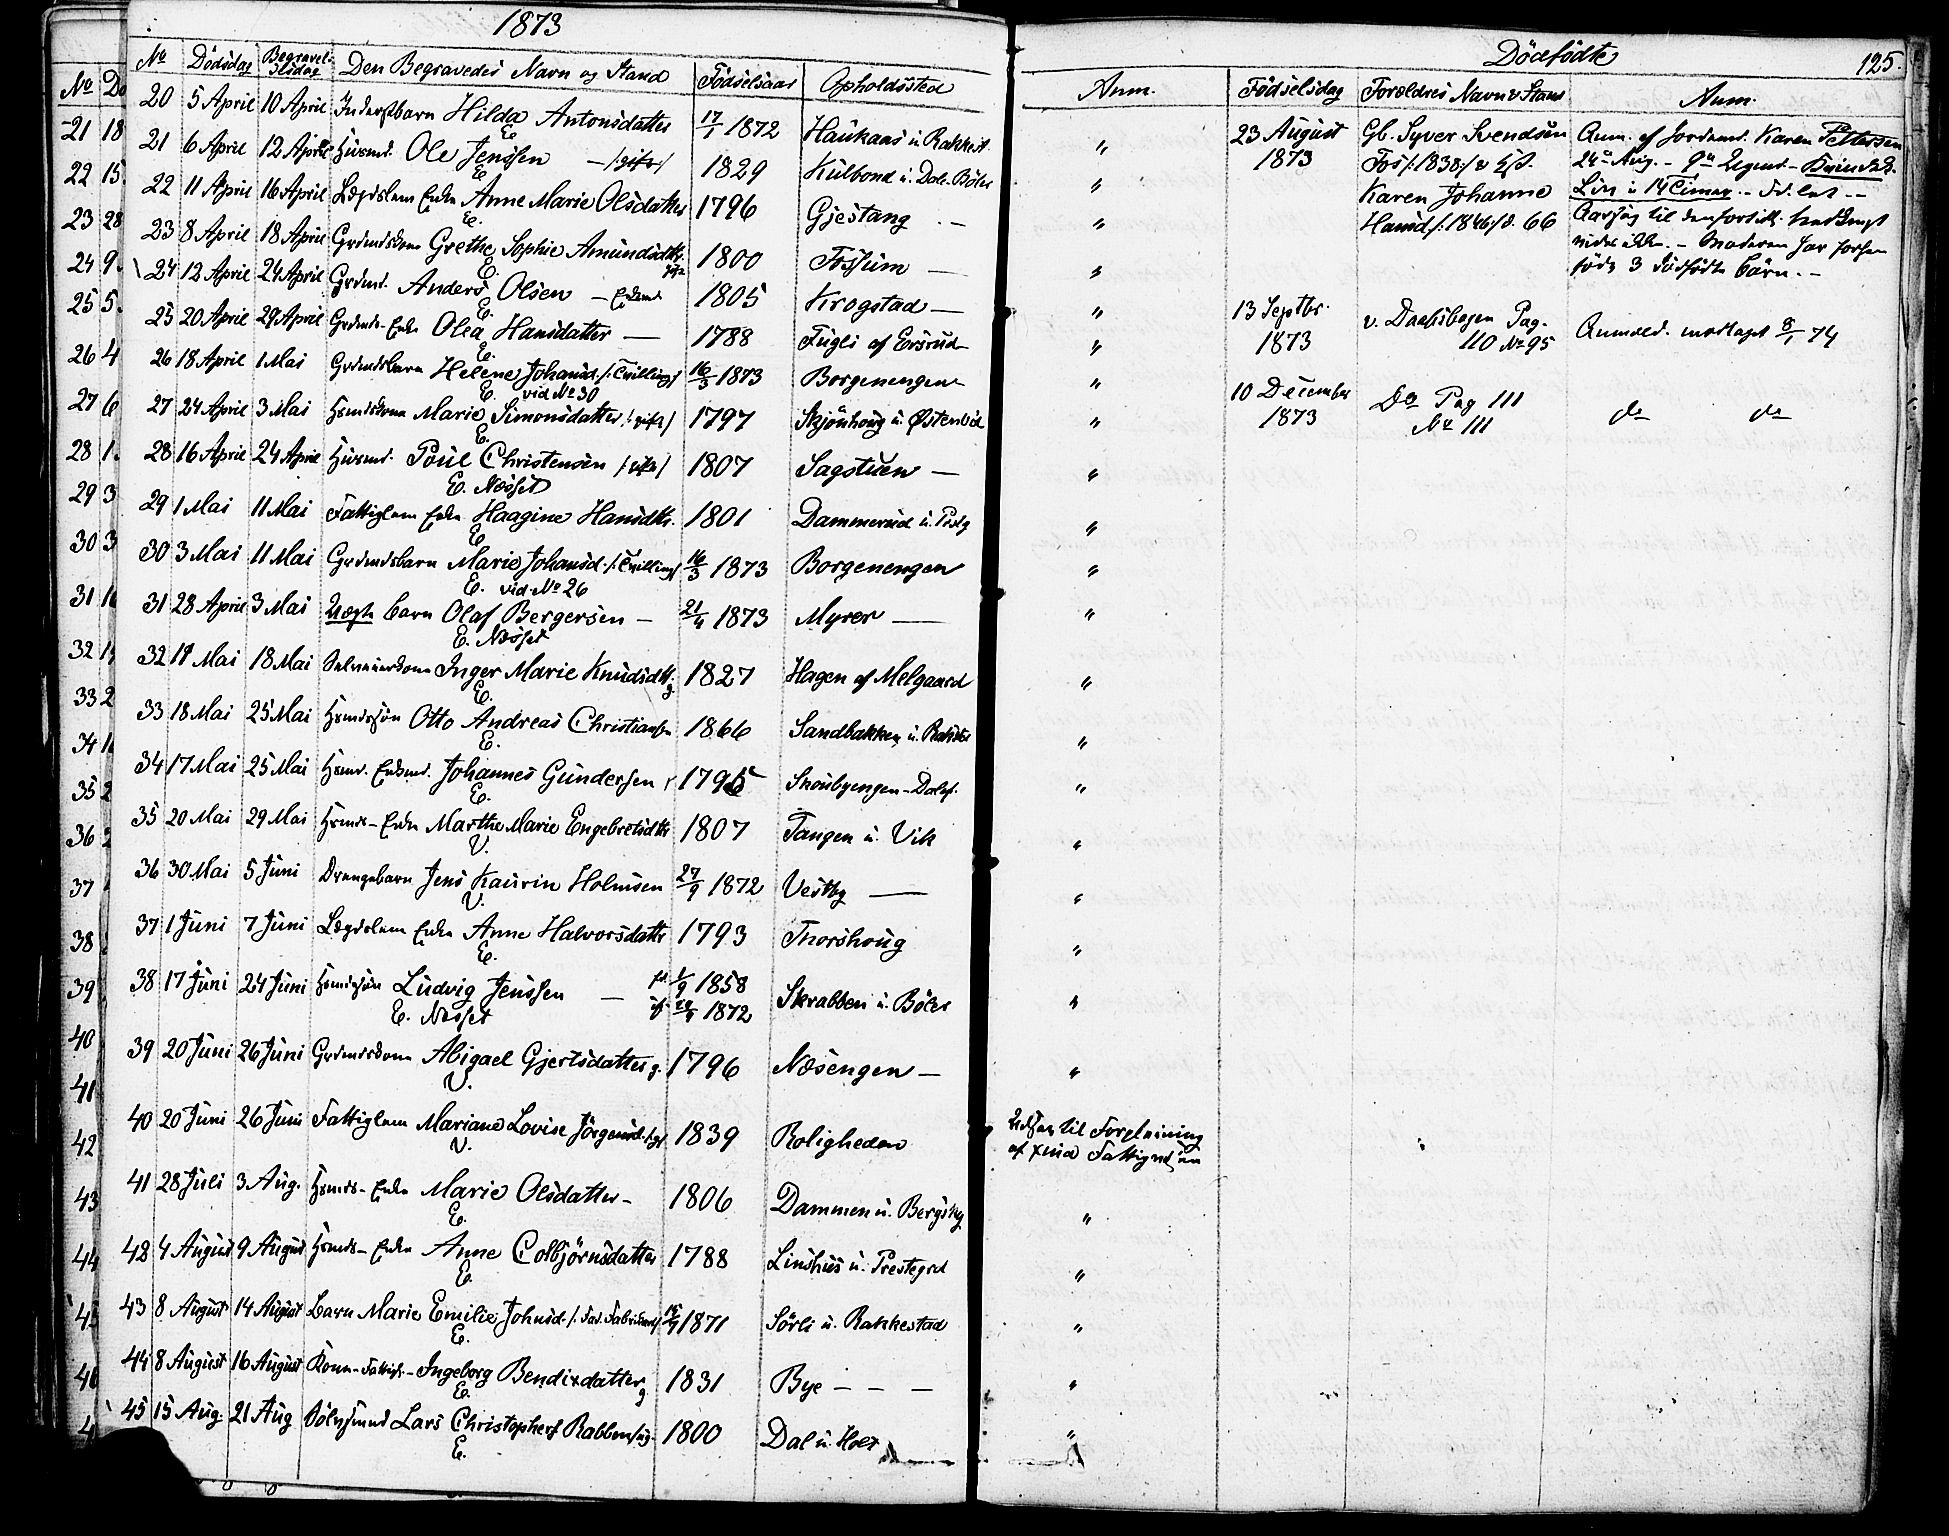 1873
No Dødsdag Begravelsesdag Den Begravedes Navn og Stand Fødselsaar Opholdssted
20 5 April 10 April Inderstbarn Hilda Antonsdatter 17/1 1872 Haukaas u. Rakkest.
E.
21 6 April 12 April Husmd. Ole Jenssen — /:gift:/ 1829 Kulbond u. Dal-Böler
E.
22 11 April 16 April Lægdslem Enke Anne Marie Olsdatter 1796 Gjestang —
E.
23 8 April 18 April Grdmdskone Grethe Sophie Amundsdtr. gift 1800 Fossum —
E.
24 12 April 24 April Grdmd. Anders Olsen — Enkemd 1805 Krogstad —
E.
25 20 April 29 April Grdmds-Enke Olea Hansdatter — 1788 Fugli af Ersrud
E.
26 18 April 1 Mai Grdmdsbarn Helene Johansd. /:Tvilling:/ 16/3 1873 Borgenengen
E. vid No 30
27 24 April 3 Mai Hsmdskone Marie Simonsdatter /:gift:/ 1797 Skjönhoug u. Østenbøl
E.
28 16 April 24 April Husmd. Poul Christensen /:gift:/ 1807 Sagstuen —
E. Næsset
29 1 Mai 11 Mai Fattiglem Enke Haagine Hansdtr. 1801 Dammerud u. Prstg
E.
30 3 Mai 11 Mai Grdmdsbarn Marie Johansd. /:Tvilling:/ 16/3 1873 Borgenengen
E. vid No 26
31 28 April 3 Mai Uægte barn Olaf Bergersen — 21/4 1873 Myrer —
E. Næsset
32 11 Mai 18 Mai Selveierkone Inger Marie Knudsdtr. g 1827 Hagen af Melgaard
E.
33 18 Mai 25 Mai Hsmdssön Otto Andreas Christiansen 1866 Sandbakken u. Rakstad
E.
34 17 Mai 25 Mai Hsmd. Enkemd. Johannes Gundersen 1795 Skoubyengen-Dalsf.
E.
35 20 Mai 29 Mai Hsmds-Enke Marthe Marie Engebretsdtr 1807 Tangen u. Vik
V.
36 30 Mai 5 Juni Drengebarn Jens Kaurin Holmsen 27/9 1872 Vestby —
V.
37 1 Juni 7 Juni Lægdslem Enke Anne Halvorsdatter 1793 Thorshoug
E.
38 17 Juni 24 Juni Hsmdssön Ludvig Jenssen — fd. 1/9 1858 Skrabben u. Böler
E. Næsset 1872
39 20 Juni 26 Juni Grdmdskone Abigael Gjertsdatter g. 1796 Næsengen —
V.
40 20 Juni 26 Juni Fattiglem Mariane Lovise Jörgensd. 1839 Roligheden
V.
41 28 Juli 3 Aug. Hsmds-Enke Marie Olsdatter — 1806 Dammen u. Bergsky
E.
42 4 August 9 August Hsmds-Enke Anne Colbjörnsdatter 1788 Linshus u. Prestegrd
E.
43 8 August 14 August Barn Marie Emilie Johnsd. 1871 Sörli u. Rakkestad
E.
44 8 August 16 August Kone-Fattigl.- Ingeborg Bendixdatter g 1831 Bye — — —
E.
45 15 Aug. 21 Aug Lars Christophers Rabbenhug. 1800 Dal u. Holt
E.
Dödfödte 125.
Anm. Födselsdag Foreldres Navn & Stand Anm.
23 August 1873
Gb. Syver Svendsen
Fos /:1838:/ &
Karen Johanne
Hansd /:1846:/ d. 66
Anm. af Jordmd. Karen Pettersen
24de Aug. —
Aarsag til
vides ikke. — Moderen har forhen
födt 3 dödfödte börn. —
13 Septbr. 1873
v. Daabsbogen Pag.
110 No 95
Anmeld. modtaget 8/1 74
10 December 1873
Do Pag 111
No 111
do do
af sine Fattigud